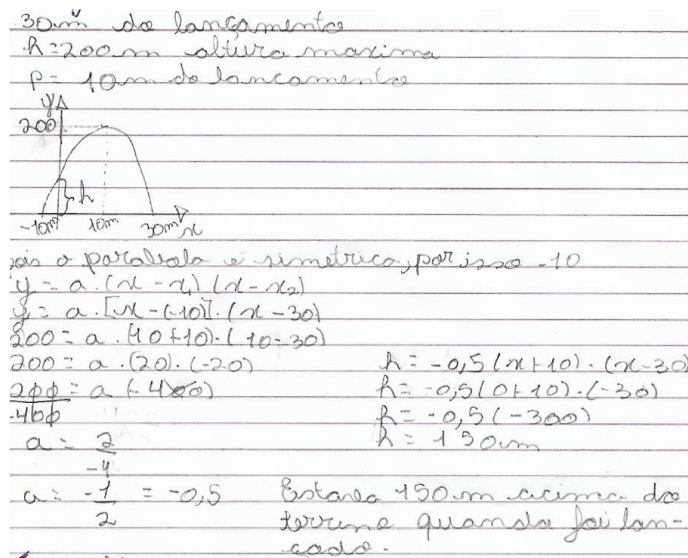 30m do lançamento
h=200m altura maxima
p= 10m do lancamento
y
200
h
-10m 10m 30m x
ois a parabola é simetrica, por isso -10
y = a.(x - x1) (x - x2)
y = a.[x - (-10)].(x - 30)
200 = a.(10+10).(10-30)
200 = a.(20).(-20)
200 = a(-400)
-400
a = 2
-4
a = -1 = -0,5
2
h = -0,5(x+10).(x-30)
h = -0,5(0+10).(-30)
h = -0,5(-300)
h = 150m
Estava 150m acima do
terreno quando foi lan-
cado.